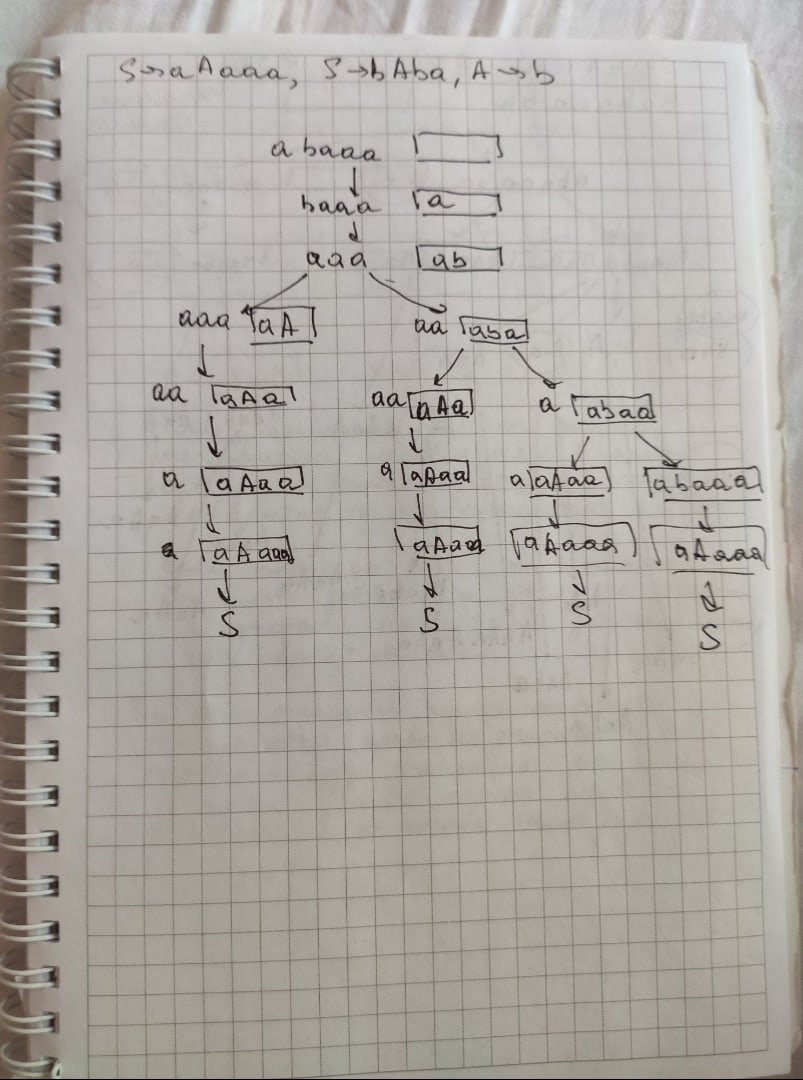 S→aAaaa, S→bAba, A→b
abaaa
baaa a
aaa ab
aaa aA aa aba
aa aAa aa aAa a abaa
a aAaa a aAaa a aAaa abaaa
a aAaaa aAaaa aAaaa aAaaa
S S S S